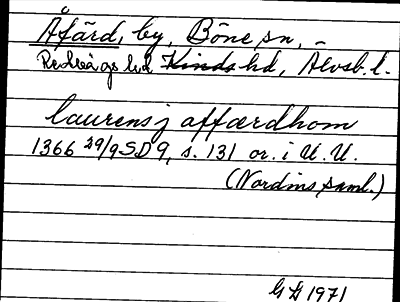 Åfärd, by, Böne sn,
Redvägs hd Kinds hd, Älvsb. l.
laurens j affærdhom
1366 29/9 SD 9, s. 131 or. i U. U.
(Nordins saml.)
G G 1971